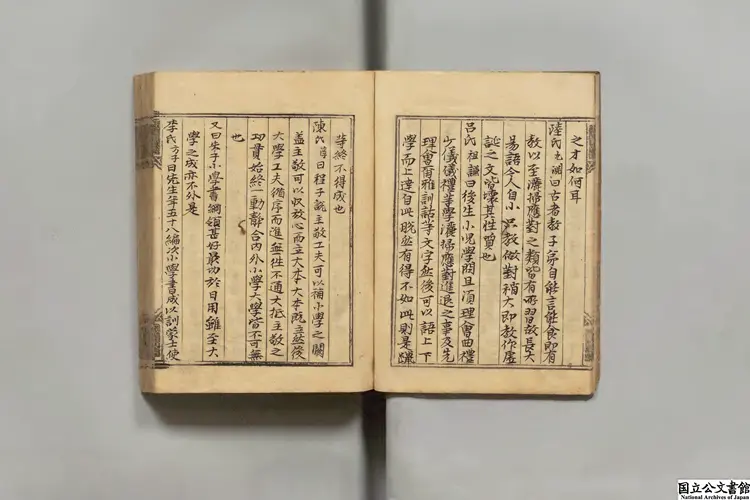 之才如何耳
陸氏九淵曰古者教子弟自能言能食即有
教以至灑掃應對之類皆有所習故長大
易語今人自小只教做對稍大即教作虛
誕之文皆壞其性質也
呂氏祖謙曰後生小兒學問且須理會曲禮
少儀儀禮等學灑掃應對進退之事及先
理會爾雅訓詁等文字然後可以語上下
學而上達自此脫然有得不如此則是躐
等終不得成也
陳氏淳曰程子說主敬工夫可以補小學之闕
盖主敬可以收放心而立大本大本既立然後
大學工夫循序而進無往不通大抵主敬之
功貫始終一動靜合内外小學大學皆不可無
也
又曰朱子小學書綱領甚好最切於日用雖至大
學之成亦不外是
李氏方子曰先生年五十八編次小學書成以訓蒙士使
国立公文書館
National Archives of Japan